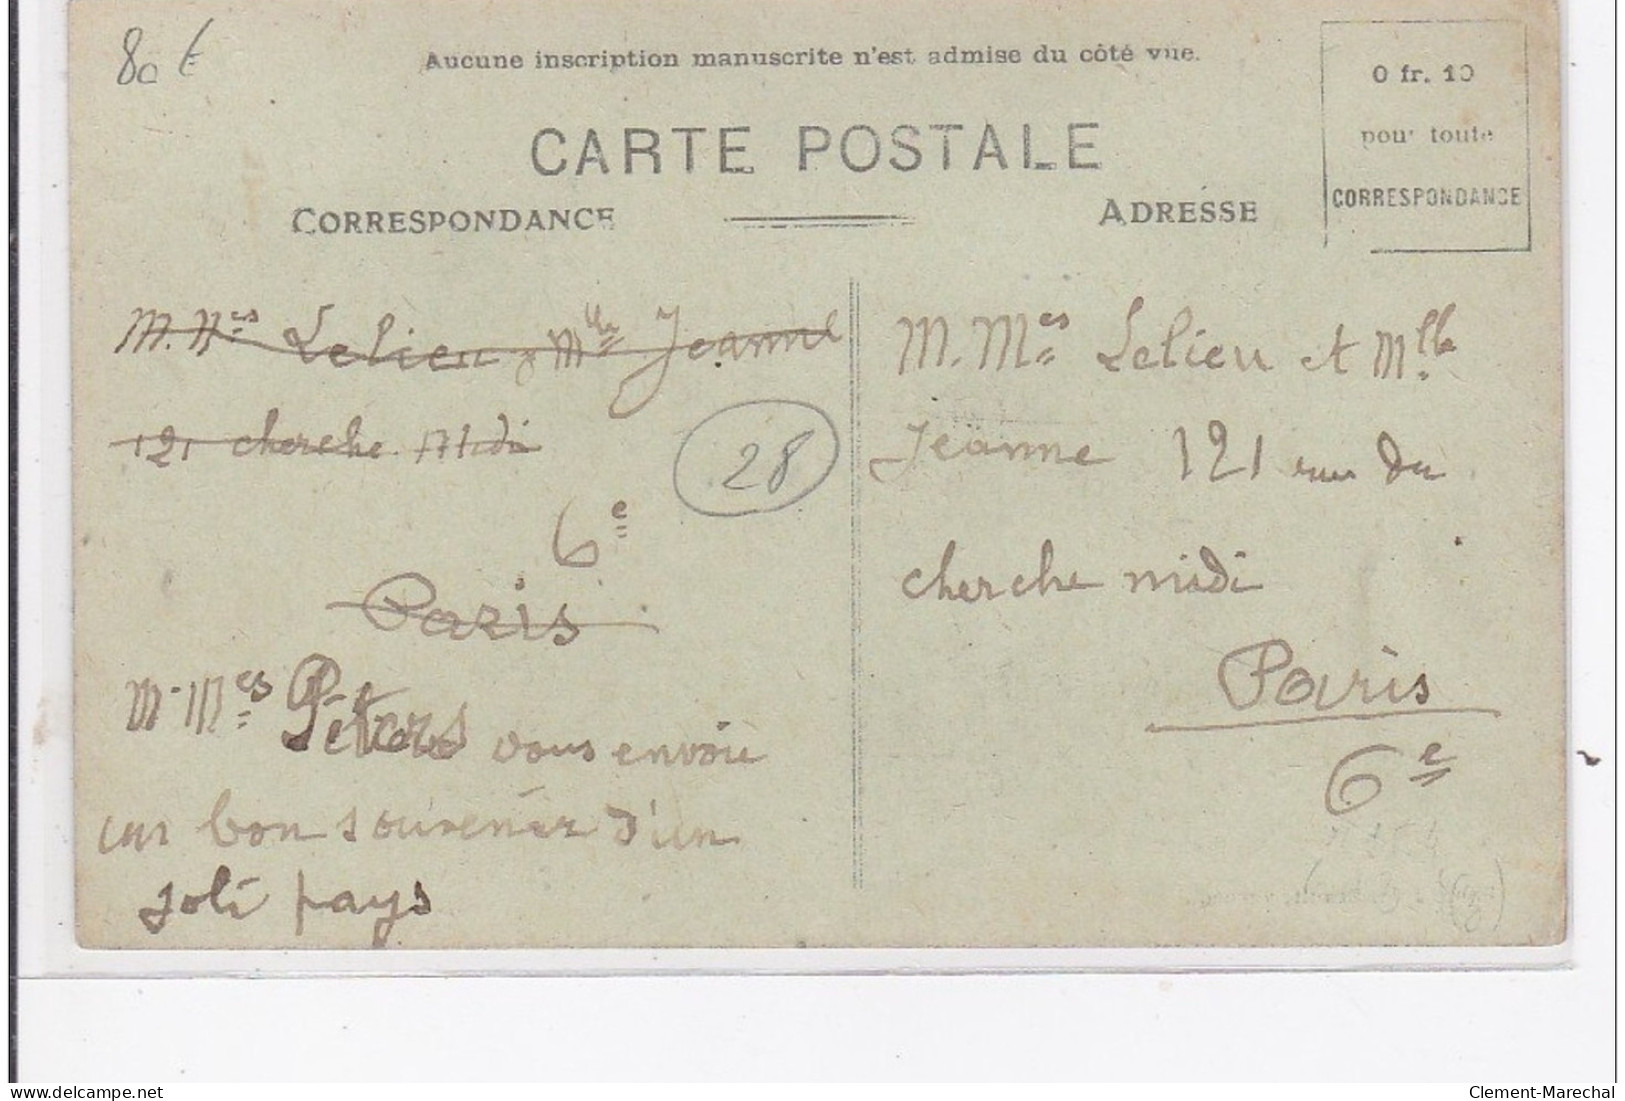 80 €
Aucune inscription manuscrite n'est admise du côté vue.
0 fr. 10
pour toute
CORRESPONDANCE
CARTE POSTALE
CORRESPONDANCE
ADRESSE
M. Mes Lelieu, Mlle Jeanne
121 cherche Midi
28
6e
Paris
M. Mes Peters vous envoie
un bon souvenir d'un
joli pays
M. Mes Lelieu et Mlle
Jeanne 121 rue du
cherche midi
Paris
6e
delcampe.net
Clement-Marechal